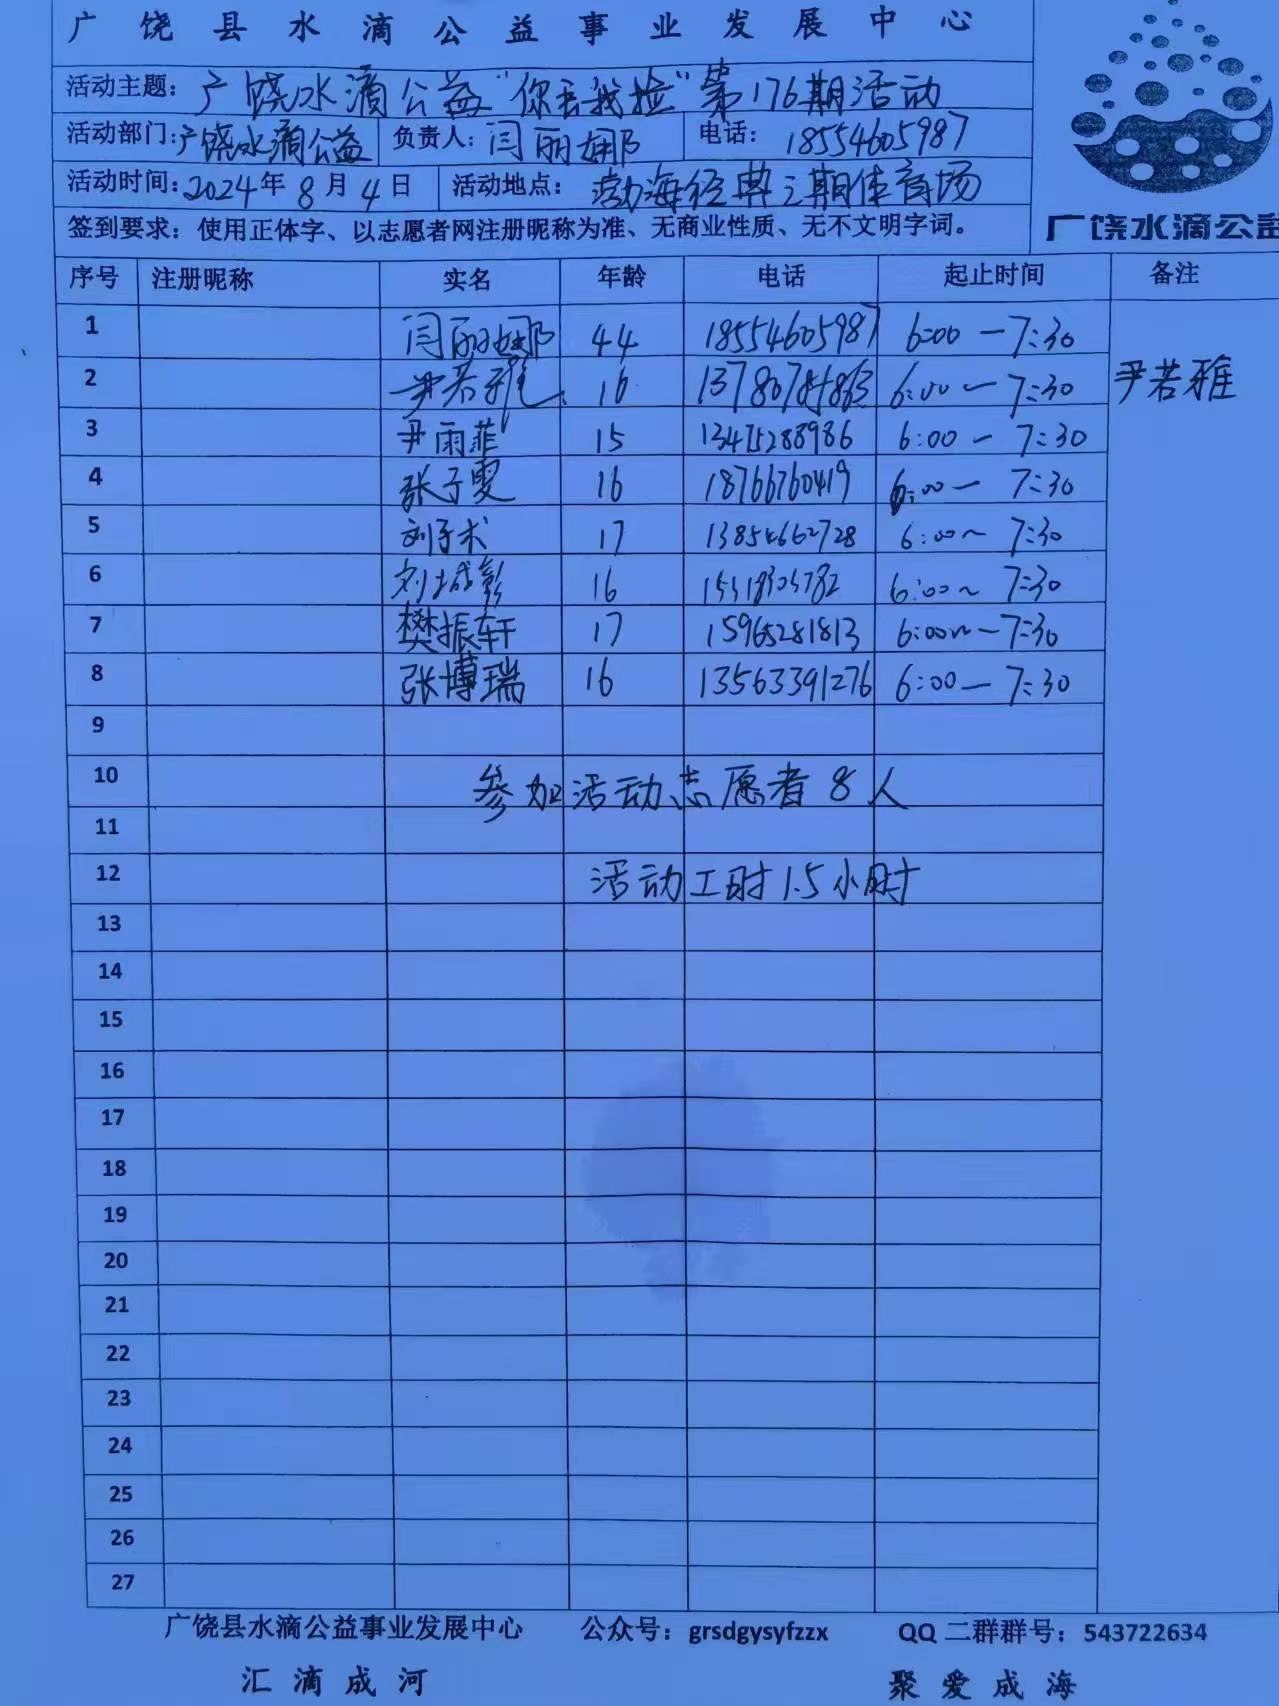 广饶县水滴公益事业发展中心
活动主题：广饶水滴公益“你丢我捡”第176期活动
活动部门：广饶水滴公益 负责人：闫丽娜 电话：18554605987
活动时间：2024年8月4日 活动地点：渤海经典三期体育场
签到要求：使用正体字、以志愿者网注册昵称为准、无商业性质、无不文明字词。
广饶水滴公益
序号 注册昵称 实名 年龄 电话 起止时间 备注
1 闫丽娜 44 18554605987 6:00—7:30
2 尹若雅 16 6:00—7:30 尹若雅
3 尹雨菲 15 13475288986 6:00—7:30
4 张子雯 16 18766760419 6:00—7:30
5 刘子术 17 13854662728 6:00~7:30
6 刘城彰 16 6:00~7:30
7 樊振轩 17 15965281813 6:00~—7:30
8 张博瑞 16 13563391276 6:00—7:30
9
10 参加活动志愿者8人
11
12 活动工时1.5小时
13
14
15
16
17
18
19
20
21
22
23
24
25
26
27
广饶县水滴公益事业发展中心 公众号：grsdgysyfzzx QQ二群群号：543722634
汇滴成河 聚爱成海